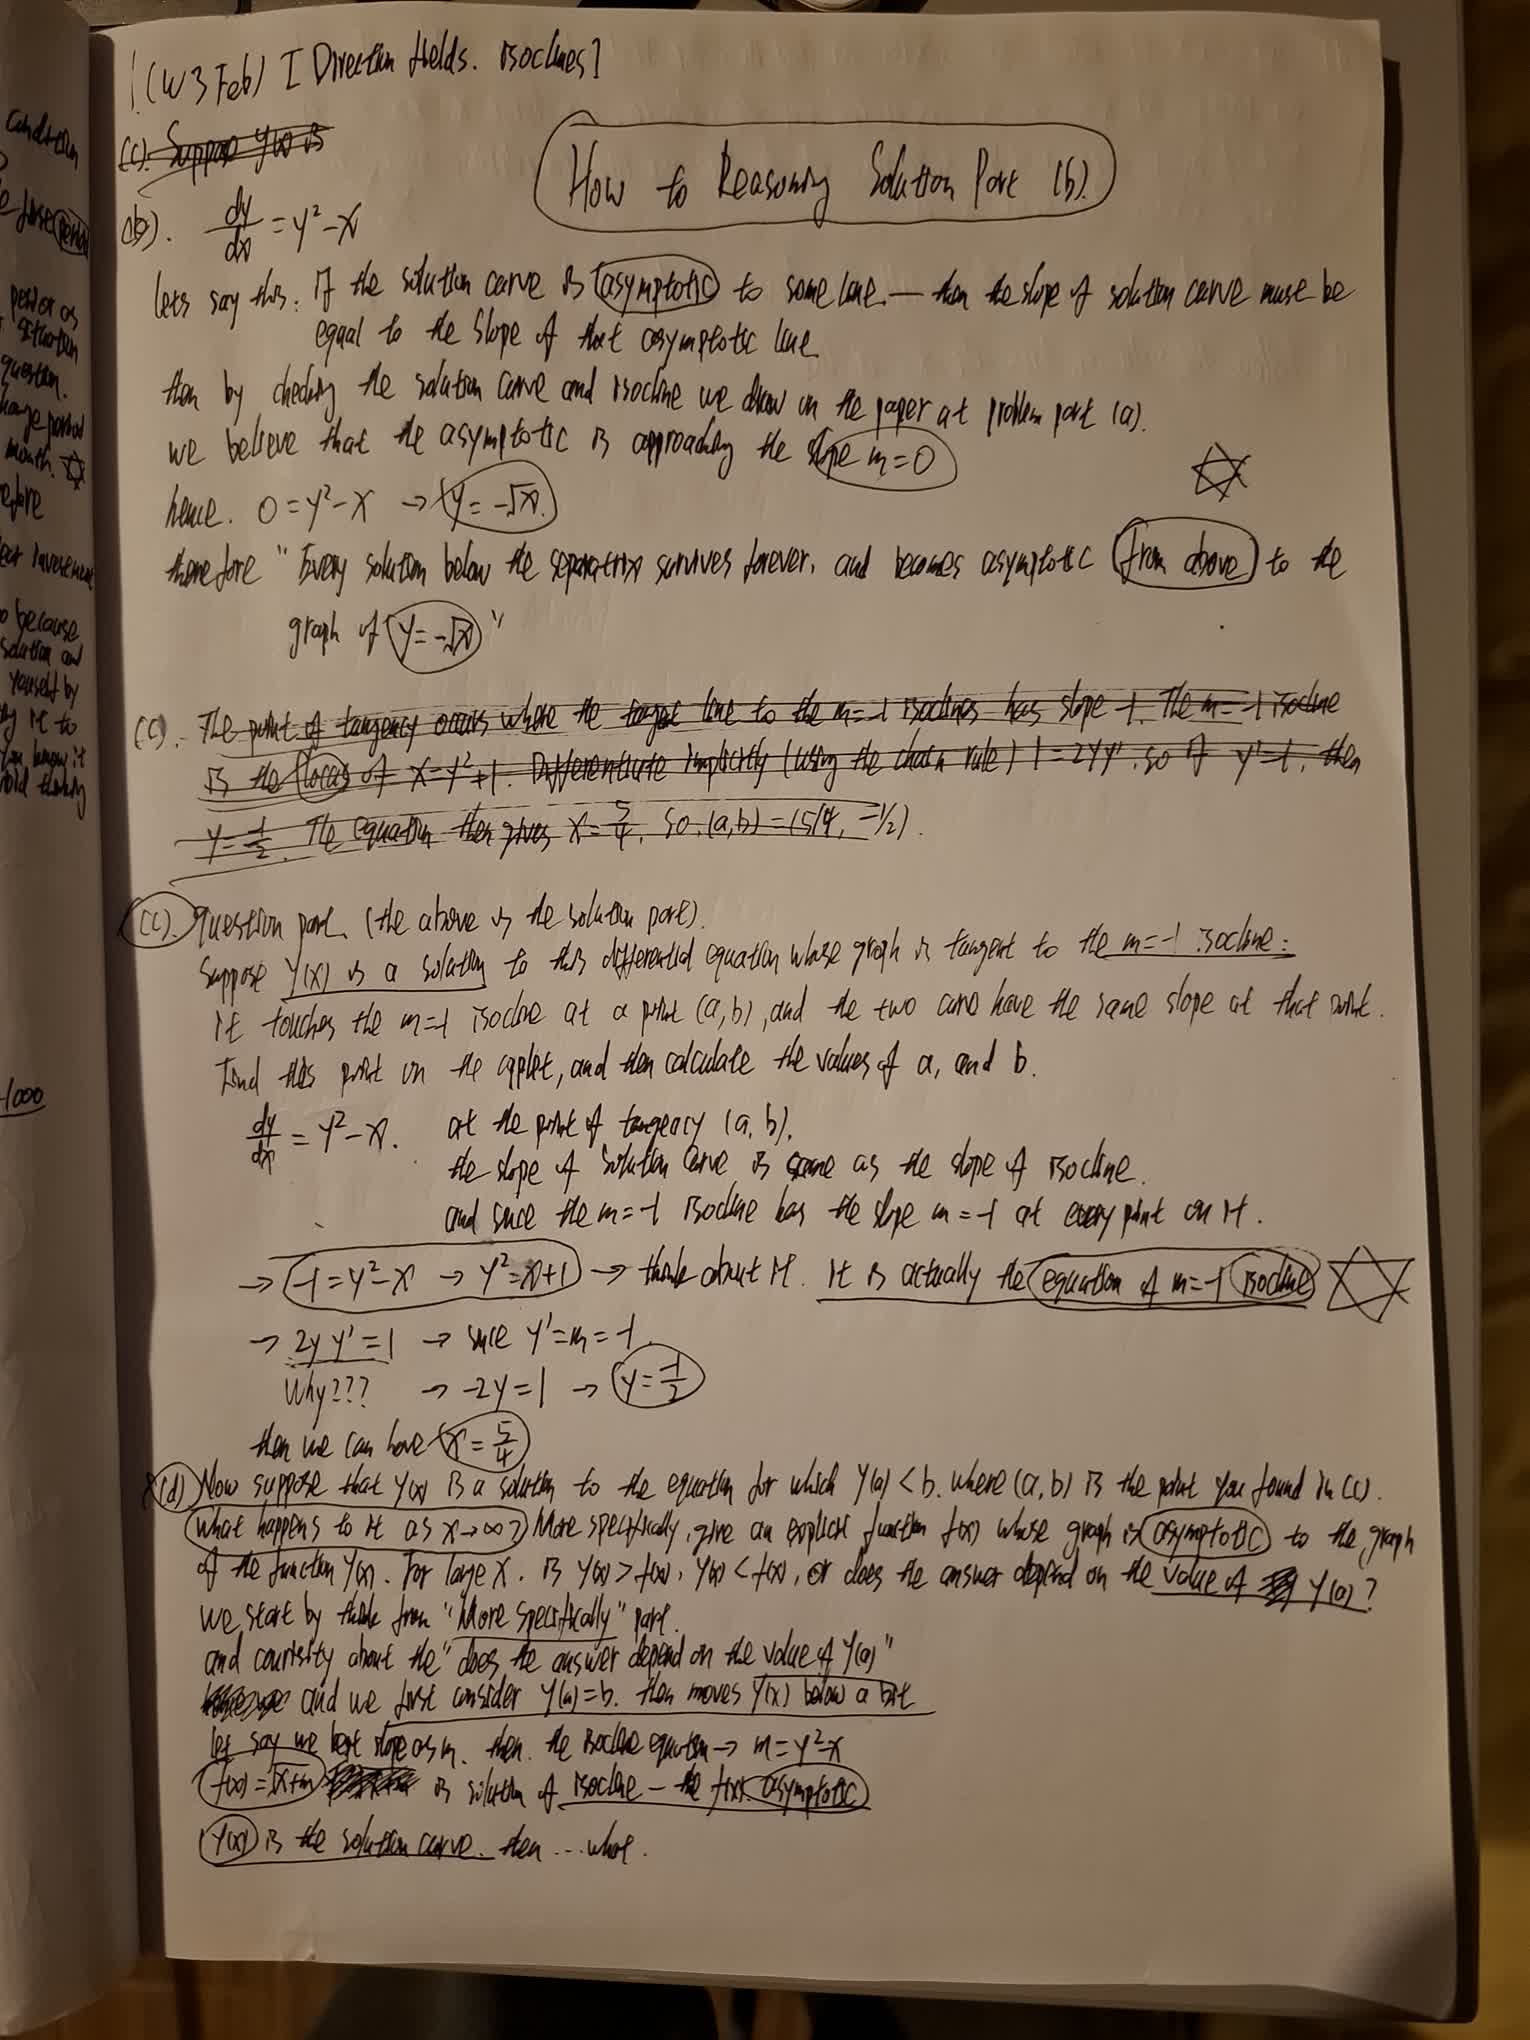 condition
period as
situation
question.
change period
month. ☆
before
year investment
so because
solution and
yourself by
-1000
1 (W 3 Feb) I Direction fields. isoclines]
(c). Suppose y(x) is
How to Reasoning Solution Part (b).
(b). dy/dx = y² - x
lets say this: If the solution curve is asymptotic to some line. — then the slope of solution curve must be
equal to the slope of that asymptotic line
then by checking the solution curve and isocline we draw on the paper at problem part (a).
we believe that the asymptotic is approaching the slope m=0
hence. 0 = y² - x → y = -√x. ☆
therefore "Every solution below the separatrix survives forever, and becomes asymptotic from above to the
graph of y = -√x"
(c). The point of tangency occurs where the tangent line to the m=-1 isoclines has slope -1. The m=-1 isocline
is the locus of x=y²+1. Differentiate implicitly (using the chain rule) 1=2yy', so if y'=-1, then
y=-1/2. The equation then gives x=5/4, so (a,b)=(5/4, -1/2).
(c). question part. (the above is the solution part).
Suppose y(x) is a solution to this differential equation whose graph is tangent to the m=-1 isocline:
it touches the m=-1 isocline at a point (a,b), and the two curve have the same slope at that point.
Find this point on the applet, and then calculate the values of a, and b.
dy/dx = y² - x. at the point of tangency (a, b).
the slope of solution curve is same as the slope of isocline.
and since the m=-1 isocline has the slope m=-1 at every point on it.
→ -1 = y² - x → y² = x+1 → think about it. It is actually the equation of m=-1 isocline ☆
→ 2y y' = 1 → since y' = m = -1
Why??? → -2y = 1 → y = -1/2
then we can have x = 5/4
*(d) Now suppose that y(x) is a solution to the equation for which y(a) < b. where (a,b) is the point you found in (c).
What happens to it as x→∞? More specifically, give an explicit function f(x) whose graph is asymptotic to the graph
of the function y(x). For large x. is y(x) > f(x), y(x) < f(x), or does the answer depend on the value of y(a)?
we start by think from "More specifically" part.
and courisity about the "does the answer depend on the value of y(a)"
and we first consider y(a)=b. then moves y(x) below a bit
let say we kept slope as m. then. the isocline equation → m = y² - x
f(x) = √x+m is solution of isocline — the f(x) asymptotic
y(x) is the solution curve. then ... what.